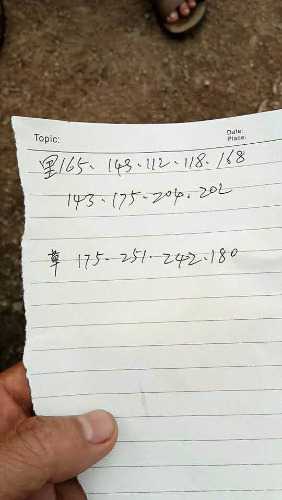 Topic:
Date:
Place:
里165、143、112、118、168
143、175、204、202
草 175、251、242、180